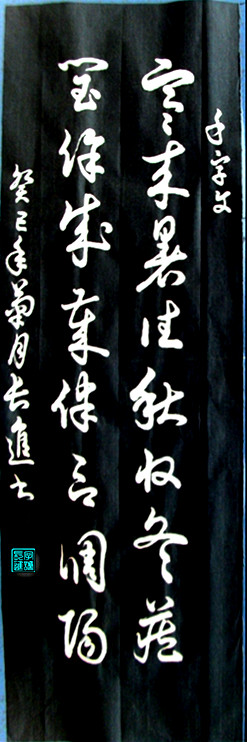 千字文
寒來暑往秋收冬藏
閏餘成歲律呂調陽
癸巳年菊月長進書